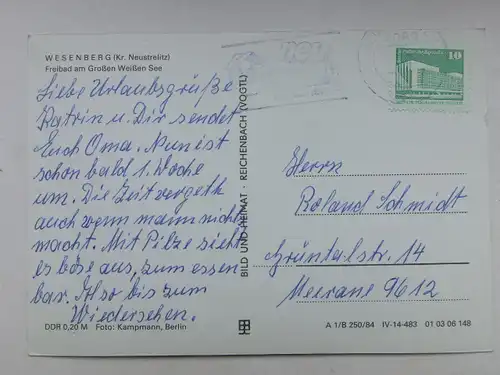 WESENBERG (Kr. Neustrelitz)
Freibad am Großen Weißen See
Liebe Urlaubsgrüße
Katrin u. Dir sendet
Euch Oma. Nun ist
schon bald 1. Woche
um. Die Zeit vergeth
auch wenn mann nichts
macht. Mit Pilze sieht
es böse aus, zum essen
bar. Also bis zum
Wiedersehen.
DDR 0,20 M Foto: Kampmann, Berlin
BILD UND HEIMAT · REICHENBACH (VOGTL)
10
Herrn
Roland Schmidt
Grüntalstr. 14
Meerane 9612
A 1/B 250/84 IV-14-483 01 03 06 148